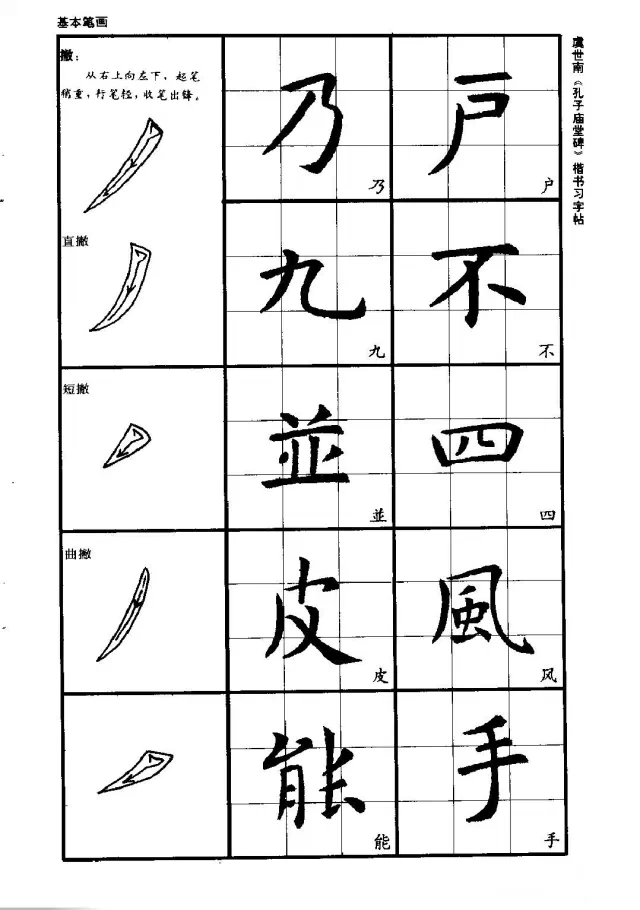 基本笔画
虞世南《孔子庙堂碑》楷书习字帖
撇：
从右上向左下，起笔
稍重，行笔轻，收笔出锋。
乃 户
乃 户
直撇
九 不
九 不
短撇
並 四
並 四
曲撇
皮 風
皮 风
能 手
能 手